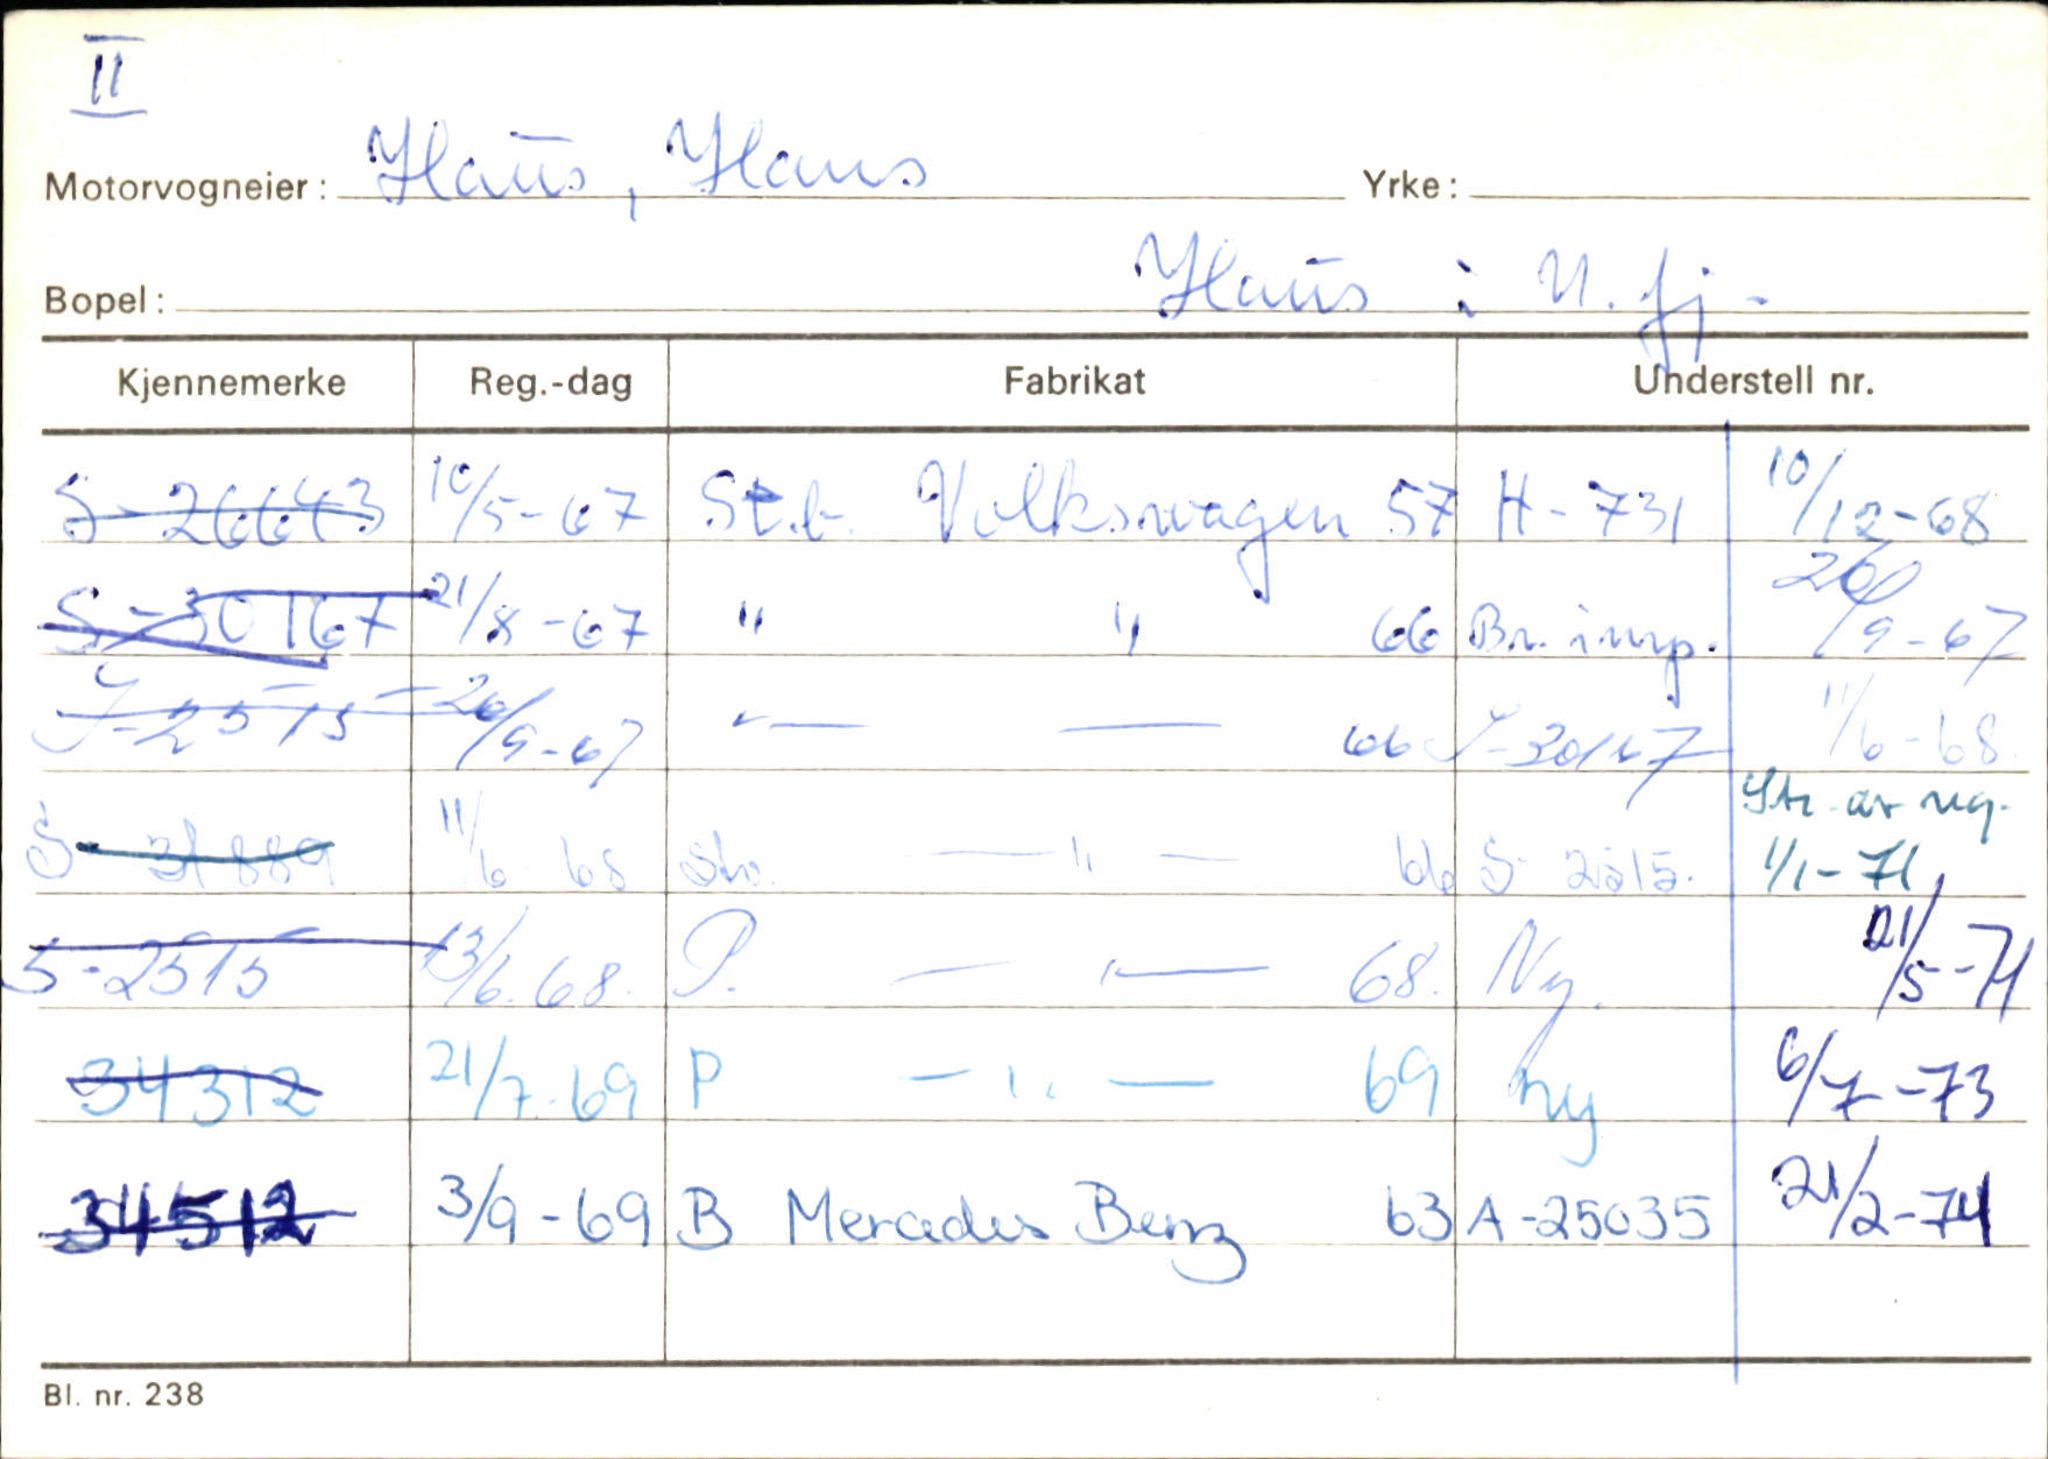 II
Motorvogneier: Haus, Hans Yrke:
Bopel: Haus i N. fj.
Kjennemerke Reg.-dag Fabrikat Understell nr.
S-26643 10/5-67 St.b. Volkswagen 57 H-731 10/12-68
S-30167 21/8-67 " " 66 Br. imp. 20/9-67
S-2515 20/9-67 — " — 66 S-30167 11/6-68
S-31889 11/6 68 Stv. — " — 66 S-2515. Str. av reg. 1/1-71
S-2515 13/6.68. P. — " — 68. Ny. 21/5-71
34312 21/7-69 P — " — 69 ny 6/7-73
34512 3/9-69 B Mercedes Benz 63 A-25035 21/2-74
Bl. nr. 238